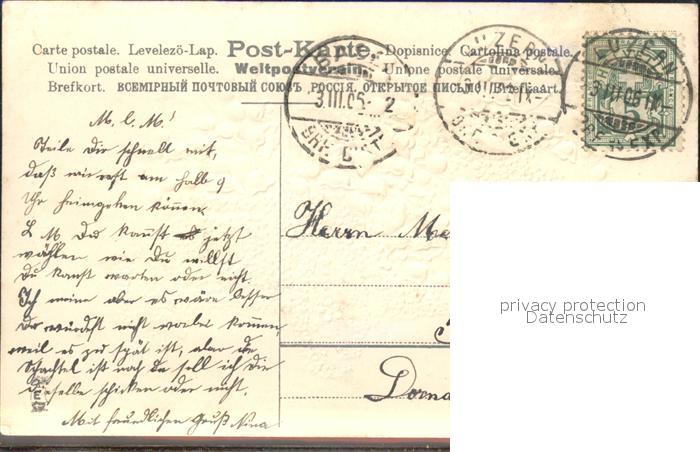 Carte postale. Levelezö-Lap. Post-Karte. Dopisnice. Cartolina postale.
Union postale universelle. Weltpostverein. Unione postale universale.
Brefkort. ВСЕМІРНЫЙ ПОЧТОВЫЙ СОЮЗЪ, РОССІЯ. ОТКРЫТОЕ ПИСЬМО. Briefkaart.
3.III.05 2
BRF. DIST
LUZERN
LUZERN
M. l. M!
Teile Dir schnell mit,
daß wir erst am halb 9
Uhr heimgehen können.
L M Du kannst jetzt
wählen wie Du willst
Du kanst warten oder nicht.
Ich meine aber es wäre besser
Du würdest nicht vorher kommen,
weil es zu spät ist, aber die
Schachtel ist noch da soll ich die
dieselbe schicken oder nicht.
Mit freundlichen Gruß Nina
Herrn
Dorna
privacy protection
Datenschutz